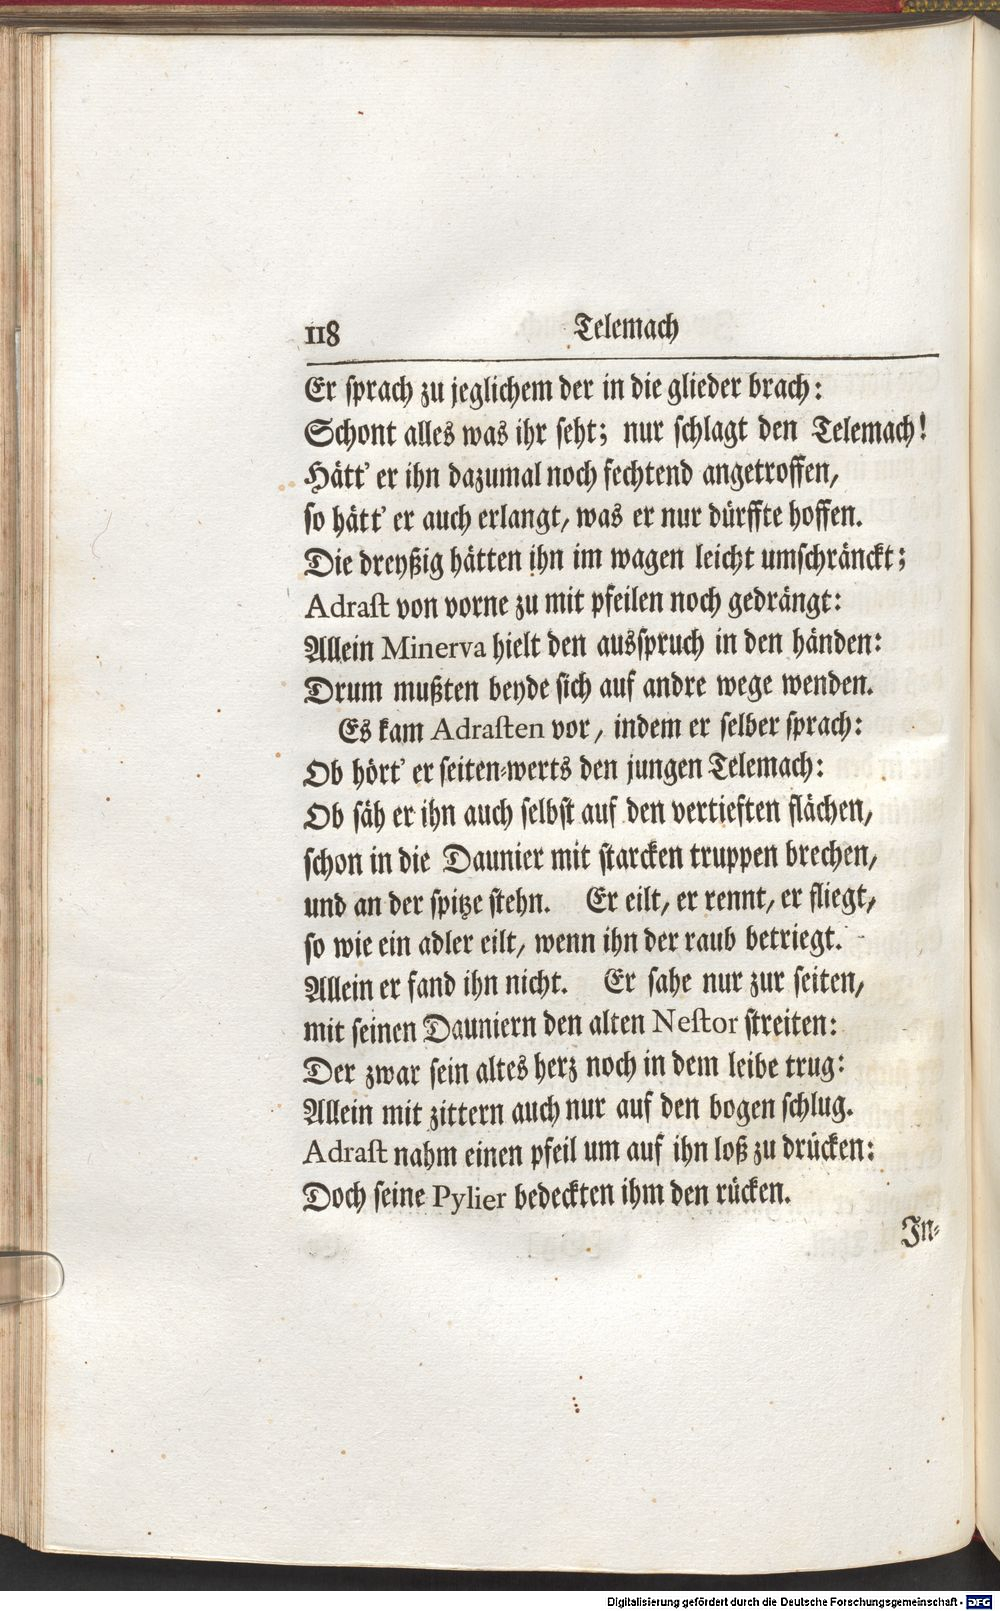 118 Telemach
Er sprach zu jeglichem der in die glieder brach:
Schont alles was ihr seht; nur schlagt den Telemach!
Hätt' er ihn dazumal noch fechtend angetroffen,
so hätt' er auch erlangt, was er nur dürffte hoffen.
Die dreyßig hätten ihn im wagen leicht umschränckt;
Adrast von vorne zu mit pfeilen noch gedrängt:
Allein Minerva hielt den ausspruch in den händen:
Drum mußten beyde sich auf andre wege wenden.
Es kam Adrasten vor, indem er selber sprach:
Ob hört' er seiten-werts den jungen Telemach:
Ob säh er ihn auch selbst auf den vertieften flächen,
schon in die Daunier mit starcken truppen brechen,
und an der spitze stehn. Er eilt, er rennt, er fliegt,
so wie ein adler eilt, wenn ihn der raub betriegt.
Allein er fand ihn nicht. Er sahe nur zur seiten,
mit seinen Dauniern den alten Nestor streiten:
Der zwar sein altes herz noch in dem leibe trug:
Allein mit zittern auch nur auf den bogen schlug.
Adrast nahm einen pfeil um auf ihn loß zu drücken:
Doch seine Pylier bedeckten ihm den rücken.
In-
Digitalisierung gefördert durch die Deutsche Forschungsgemeinschaft - DFG